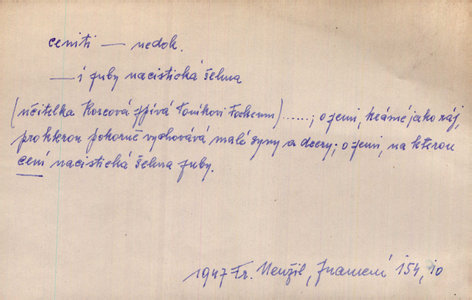 ceniti — nedok.
— i zuby nacistická šelma
(učitelka Korcová zpívá Toníkovi ) ......; o zemi, krásné jako ráj,
pro kterou pokorně vychovává malé syny a dcery; o zemi, na kterou
cení nacistická šelma zuby.
1947 Fr. Neužil, Znamení 154, 10